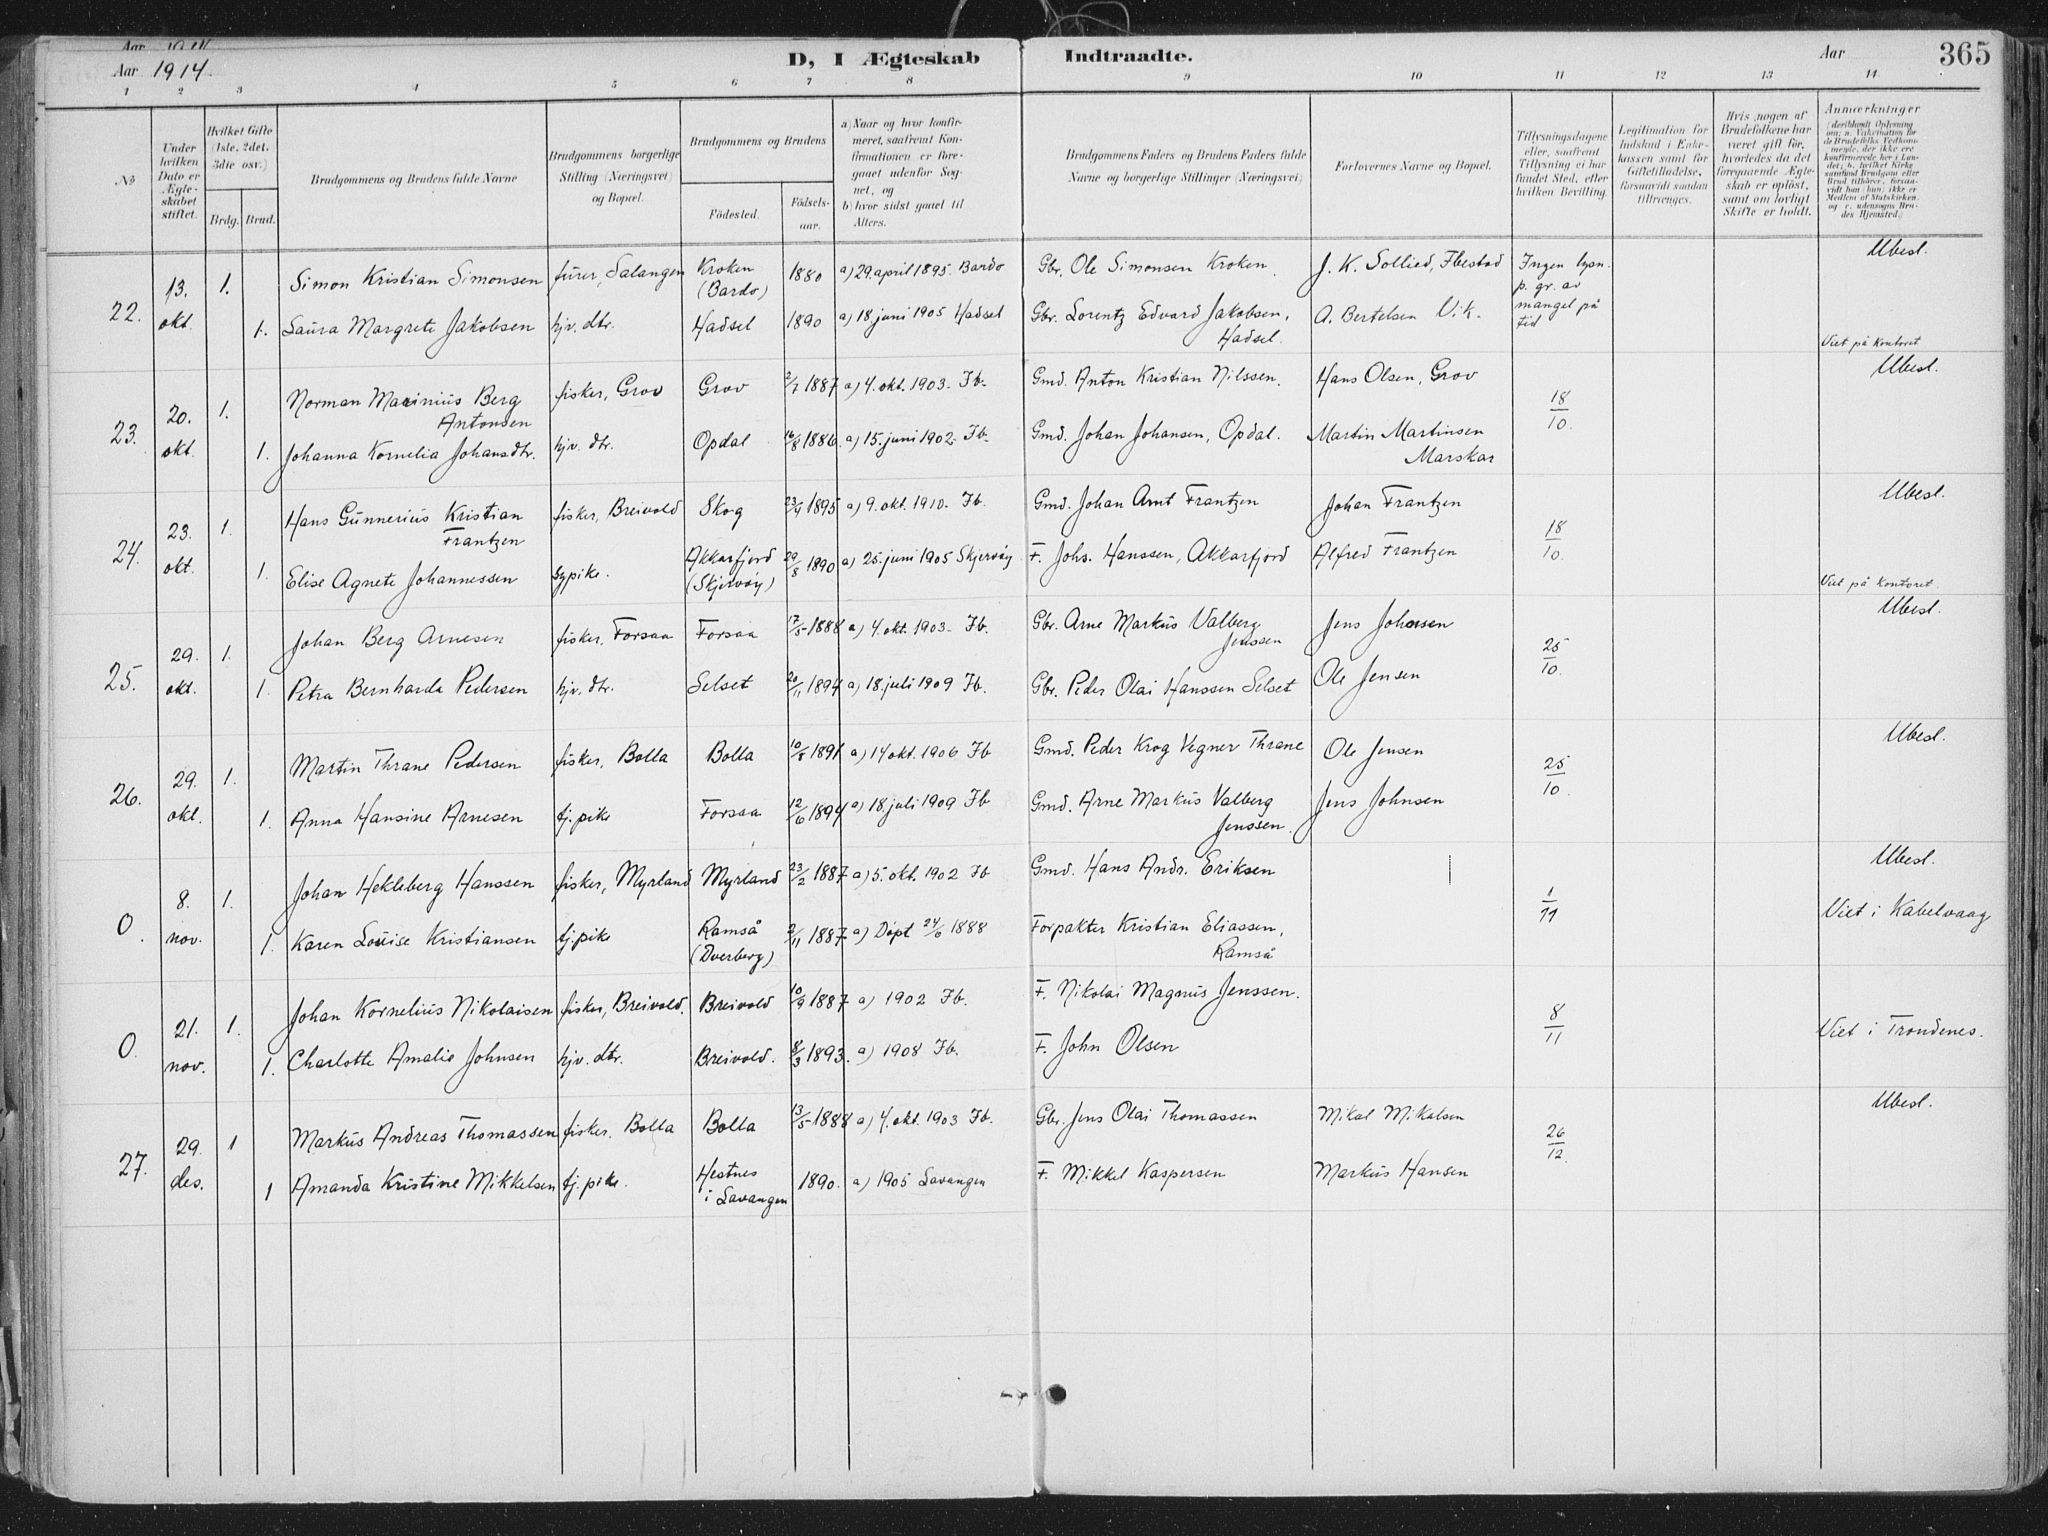 Aar 1914.
D, I Ægteskab Indtraadte.
Aar
365
1 2 3 4 5 6 7 8 9 10 11 12 13 14
No
Under hvilken Dato er Ægteskabet stiftet.
Hvilket Gifte (1ste, 2det, 3die osv.)
Brdg. Brud.
Brudgommens og Brudens fulde Navne
Brudgommens borgerlige Stilling (Næringsvei) og Bopæl.
Brudgommens og Brudens
Födested.
Födselsaar.
a) Naar og hvor konfirmeret, saafremt Konfirmationen er foregaaet udenfor Sognet, og
b) hvor sidst gaaet til Alters.
Brudgommens Faders og Brudens Faders fulde Navne og borgerlige Stillinger (Næringsvei)
Forlovernes Navne og Bopæl.
Tillysningsdagene eller, saafremt Tillysning ei har fundet Sted, efter hvilken Bevilling.
Legitimation for Indskud i Enkekassen samt for Giftetilladelse, forsaavidt saadan tiltrænges.
Hvis nogen af Brudefolkene har været gift før, hvorledes da det foregaaende Ægteskab er opløst, samt om lovligt Skifte er holdt.
Anmærkninger
22. 13. okt. 1. Simon Kristian Simonsen furer, Salangen Kroken (Bardo) 1880 a) 29. april 1895. Bardo Gbr. Ole Simonsen Kroken. J. K. Sollied, Ibestad Ingen lysn. p. gr. av mangel på tid Ubesl.
1. Laura Margrete Jakobsen hjv. dtr. Hadsel 1890 a) 18 juni 1905 Hadsel Gbr. Lorentz Edvard Jakobsen, Hadsel. A. Bertelsen Vik. Viet på kontoret
23. 20. okt. 1. Norman Marinius Berg Antonsen fisker, Grov Grov 2/7 1887 a) 4. okt. 1903. Ib. Gmd. Anton Kristian Nilssen. Hans Olsen, Grov 18/10. Ubesl.
1. Johanna Kornelia Johansdtr. hjv. dtr. Opdal 16/8 1886. a) 15. juni 1902. Ib. Gmd. Johan Johansen, Opdal. Martin Martinsen Marskar
24. 23. okt. 1. Hans Gunnerius Kristian Frantzen fisker, Breivold Skog 23/4 1895 a) 9. okt. 1910. Ib. Gmd. Johan Arnt Frantzen Johan Frantzen 18/10. Ubesl.
1. Elise Agnete Johannessen sypike. Akkarfjord (Skjervöy) 29/8 1890 a) 25. juni 1905 Skjervöy F. Johs. Hanssen, Akkarfjord Alfred Frantzen Viet på kontoret.
25. 29. okt. 1. Johan Berg Arnesen fisker, Forsaa Forsaa 17/5 1888 a) 4. okt. 1903. Ib. Gbr. Arne Markus Valberg Jenssen Jens Johnsen 25/10. Ubesl.
1. Petra Bernharda Pedersen hjv. dtr. Selset 20/11 1894 a) 18. juli 1909 Ib. Gbr. Peder Olai Hanssen Selset Ole Jensen
26. 29. okt. 1. Martin Thrane Pedersen fisker, Bolla Bolla 10/8 1891 a) 14 okt. 1906 Ib Gmd. Peder Krog Vegner Thrane Ole Jensen 25/10. Ubesl.
1. Anna Hansine Arnesen tj. pike Forsaa 12/6 1894 a) 18. juli 1909 Ib Gmd. Arne Markus Valberg Jenssen. Jens Johnsen
0. 8. nov. 1. Johan Hekleberg Hanssen fisker, Myrland Myrland 23/2 1887 a) 5. okt. 1902 Ib Gmd. Hans Andr. Eriksen 1/11 Ubesl.
1. Karen Louise Kristiansen tj. pike Ramså (Dverberg) 2/11 1887 a) Döpt 24/6 1888 Forpakter Kristian Eliassen, Ramså Viet i Kabelvaag
0. 21. nov. 1. Johan Kornelius Nikolaisen fisker, Breivold. Breivold 10/9 1887 a) 1902 Ib. F. Nikolai Magnus Jenssen. 8/11 Viet i Trondenes.
1. Charlotte Amalie Johnsen hjv. dtr. Breivold. 8/3 1893. a) 1908 Ib. F. John Olsen
27. 29. des. 1 Markus Andreas Thomassen fisker. Bolla Bolla 13/5 1888 a) 4. okt. 1903 Ib. Gbr. Jens Olai Thomassen Mikal Mikalsen 26/12. Ubesl.
1 Amanda Kristine Mikkelsen tj. pike. Hestnes i Lavangen 1890. a) 1905 Lavangen F. Mikkel Kaspersen Markus Hansen